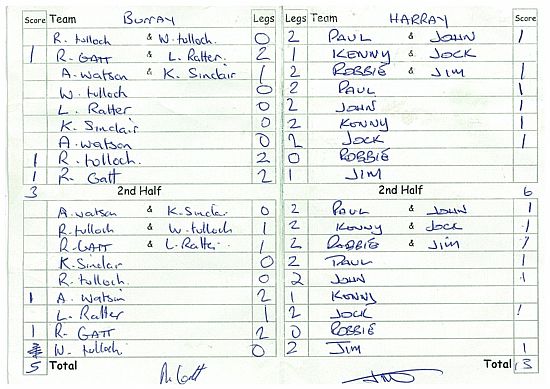 Score Team Burray Legs Legs Team HARRAY Score
R. tulloch & W. tulloch. 0 2 PAUL & JOHN 1
1 R. GATT & L. Ratter. 2 1 KENNY & JOCK
A. Watson & K. Sinclair 1 2 ROBBIE & JIM 1
W. tulloch 0 2 PAUL 1
L. Ratter 0 2 JOHN 1
K. Sinclair 0 2 KENNY 1
A. watson 0 2 JOCK 1
1 R. tulloch. 2 0 ROBBIE
1 R. Gatt 2 1 JIM
3 2nd Half 2nd Half 6
A. watson & K. Sinclair 0 2 PAUL & JOHN 1
R. tulloch & W. tulloch 1 2 KENNY & JOCK 1
R. GATT & L. Ratter. 1 2 ROBBIE & JIM 1
K. Sinclair 0 2 PAUL 1
R. tulloch. 0 2 JOHN 1
1 A. Watson 2 1 KENNY
L. Ratter 1 2 JOCK 1
1 R. GATT 2 0 ROBBIE
W. tulloch 0 2 JIM 1
5 Total R. Gatt Total 13